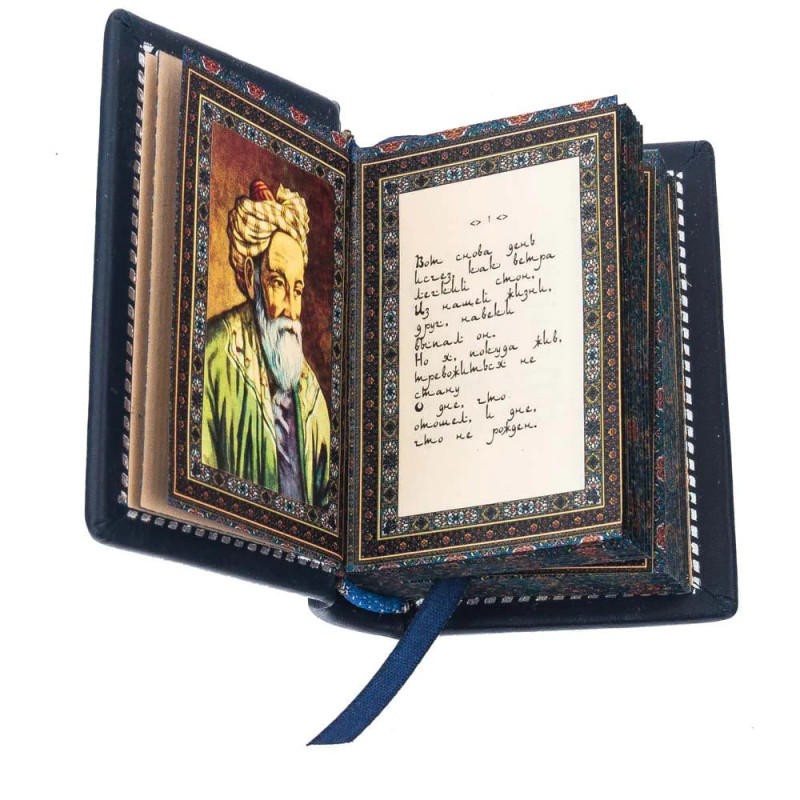 <> 1 <>
Вот снова день
исчез, как ветра
легкий стон,
Из нашей жизни,
друг, навеки
выпал он.
Но я, покуда жив,
тревожиться не
стану
О дне, что
отошел, и дне,
что не рожден.